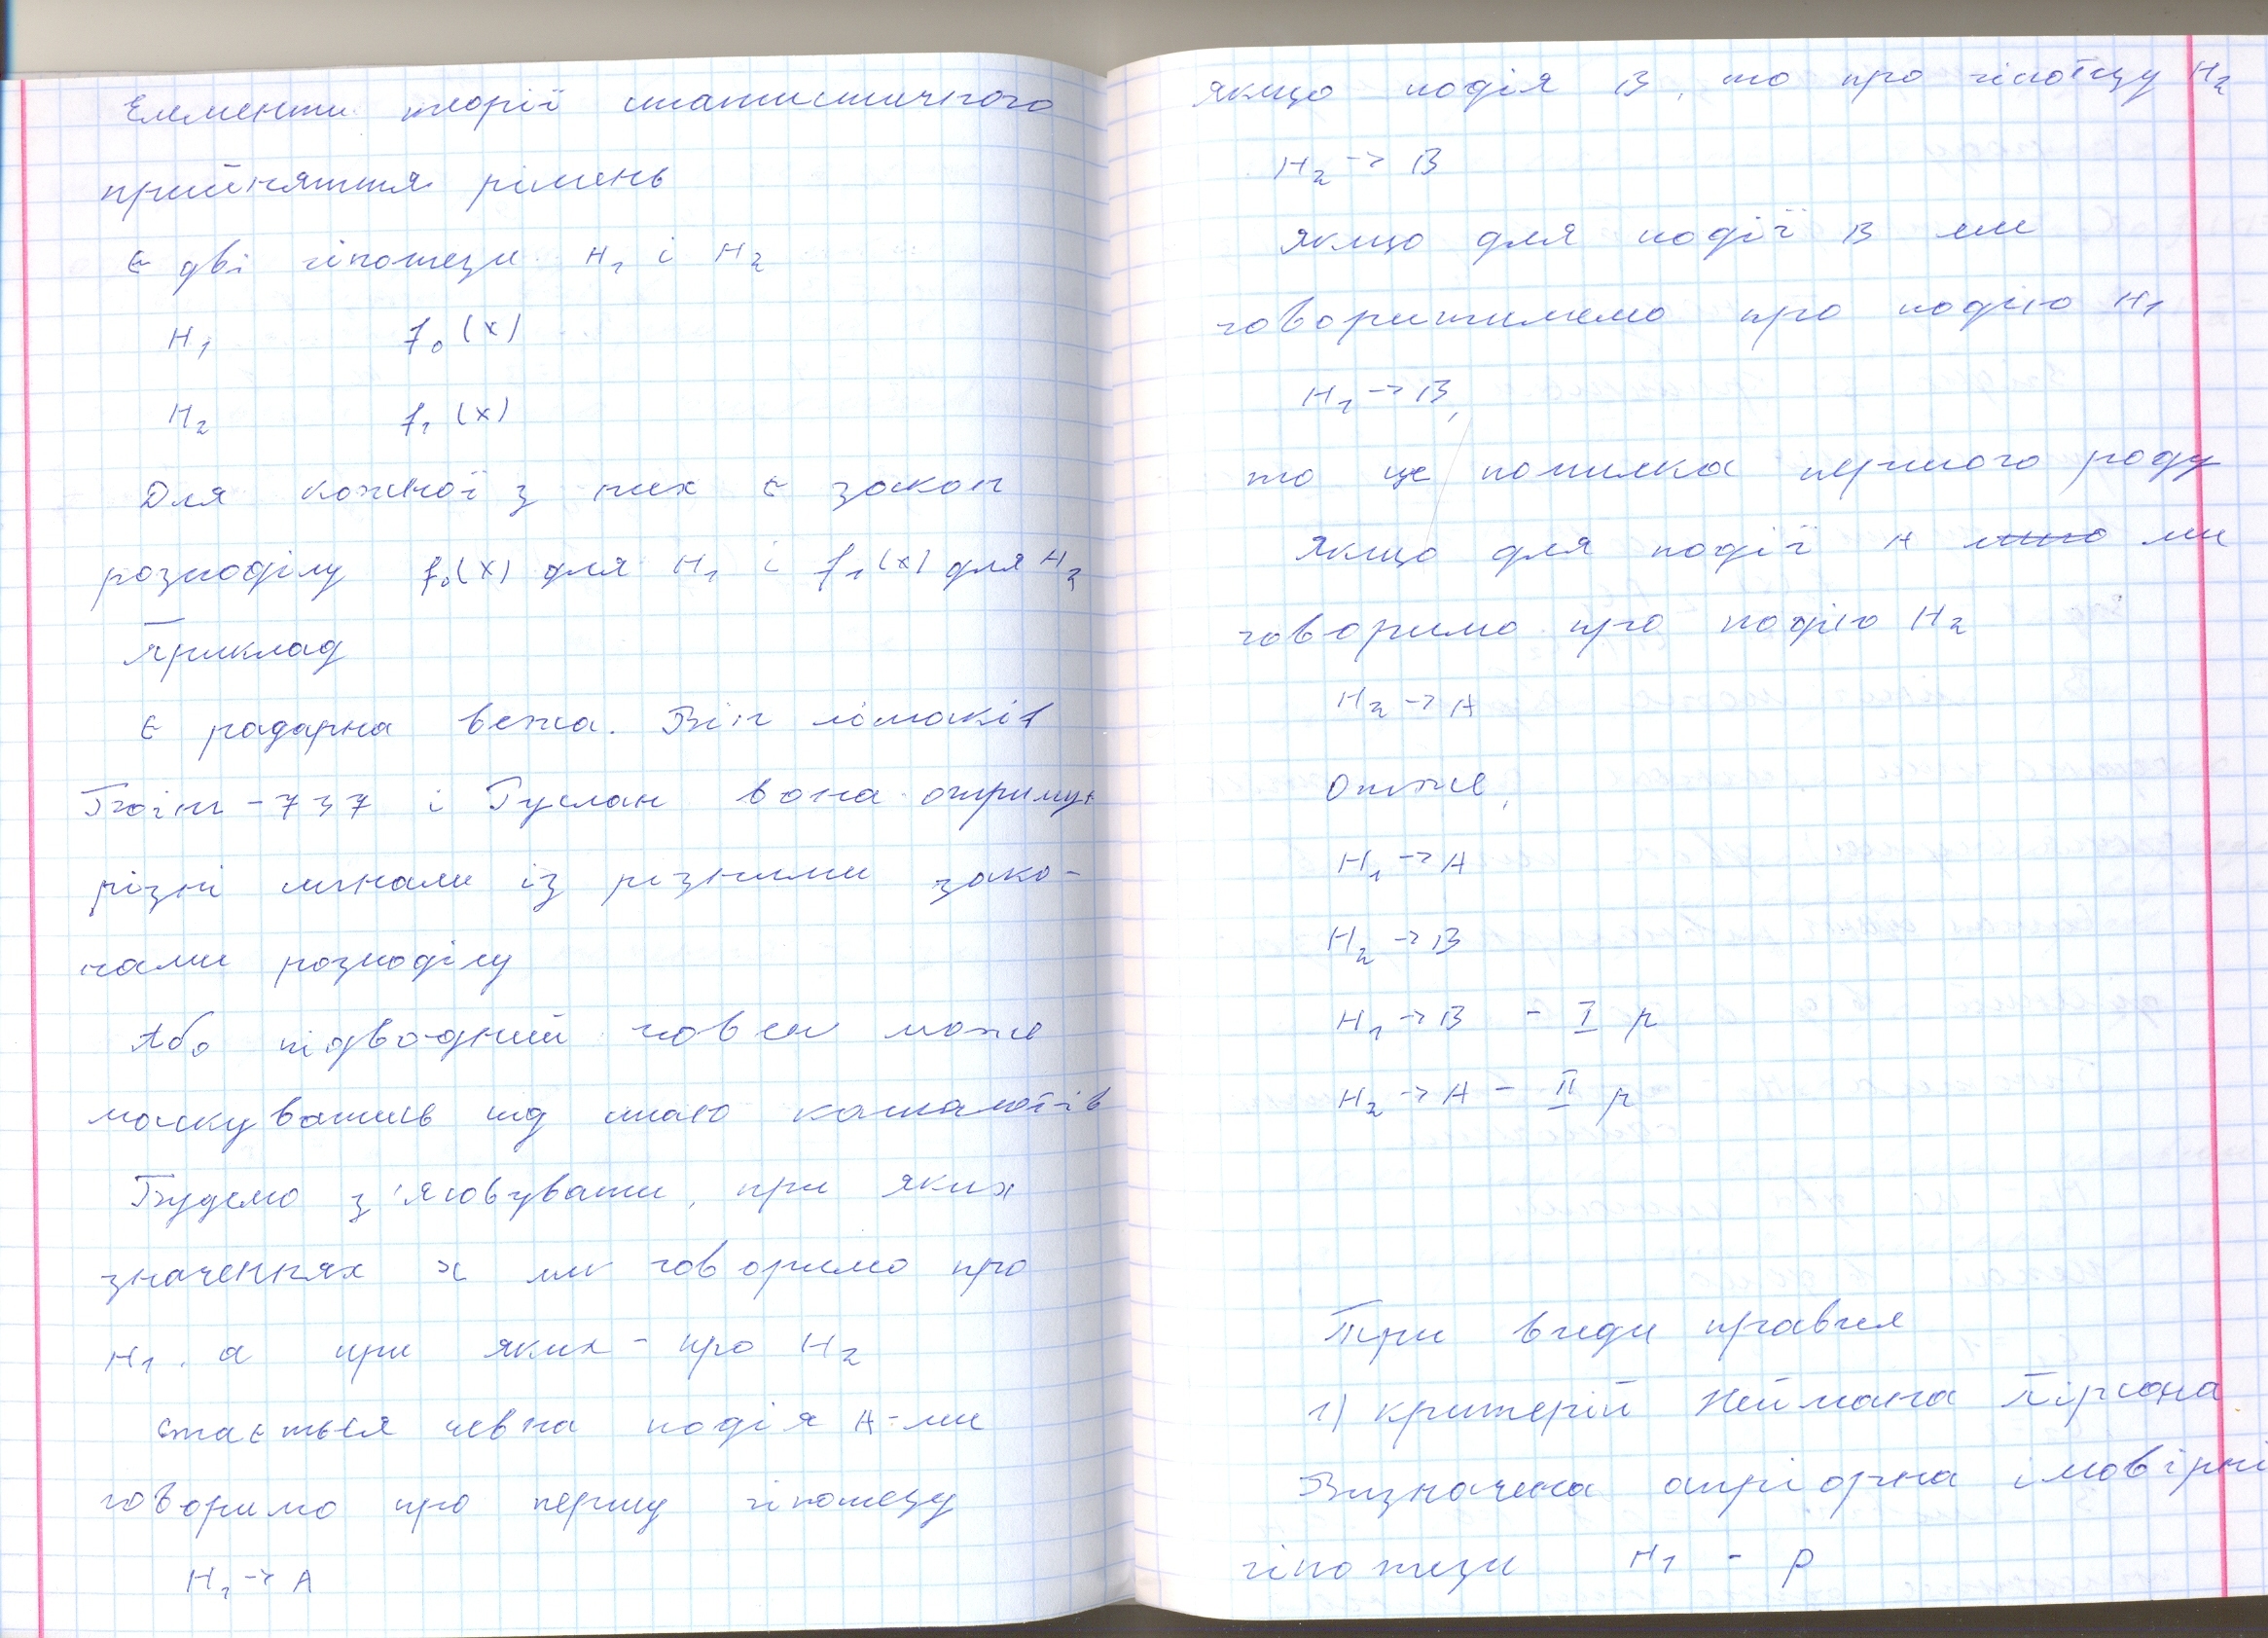 Елементи теорії статистичного
прийняття рішень
Є дві гіпотези H₁ і H₂
H₁ f₀(x)
H₂ f₁(x)
Для кожної з них є закон
розподілу f₀(x) для H₁ і f₁(x) для H₂
Приклад
Є радарна вежа. Від літаків
Боїнг-737 і Руслан вона отримує
різні сигнали із різними зако-
нами розподілу
Або підводний човен може
маскуватись під стаю кашалотів
Будемо з'ясовувати, при яких
значеннях x ми говоримо про
H₁, а при яких - про H₂
Стається певна подія A - ми
говоримо про першу гіпотезу
H₁ → A
Якщо подія B, то про гіпотезу H₂
H₂ → B
Якщо для події B ми
говоритимемо про подію H₁
H₁ → B,
то це помилка першого роду
Якщо для події A ми
говоримо про подію H₂
H₂ → A
Отже,
H₁ → A
H₂ → B
H₁ → B - I р
H₂ → A - II р
Три види правил
1) критерій Неймана Пірсона
Визначена апріорна імовірні
гіпотези H₁ - p